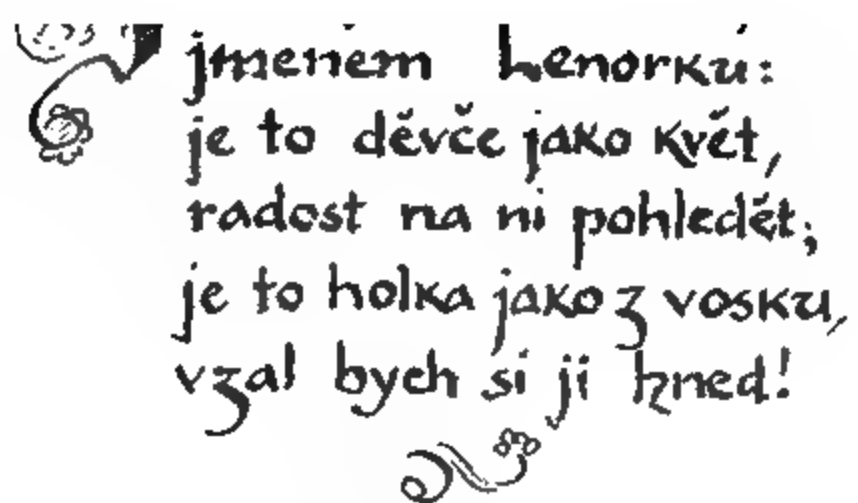 jmenem Lenorku:
je to děvče jako květ,
radost na ni pohledět;
je to holka jako z vosku,
vzal bych si ji hned!